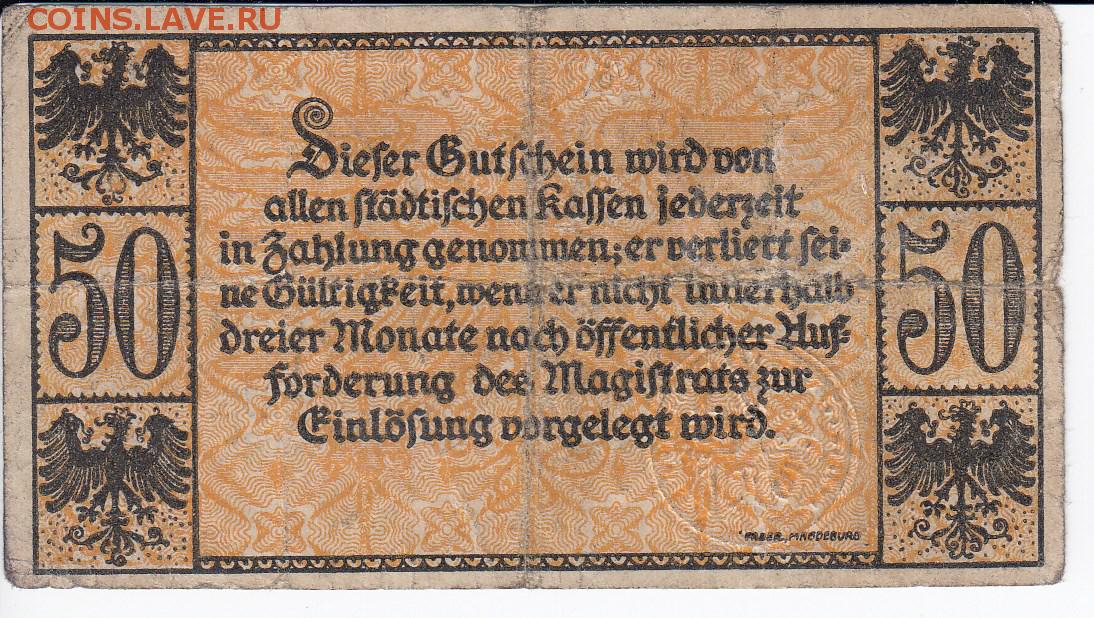 COINS.LAVE.RU
Dieser Gutschein wird von
allen städtischen Kassen jederzeit
in Zahlung genommen; er verliert sei=
50
50
ne Gültigkeit, wenn er nicht innerhalb
dreier Monate nach öffentlicher Auf=
forderung des Magistrats zur
Einlösung vorgelegt wird.
FABER, MAGDEBURG